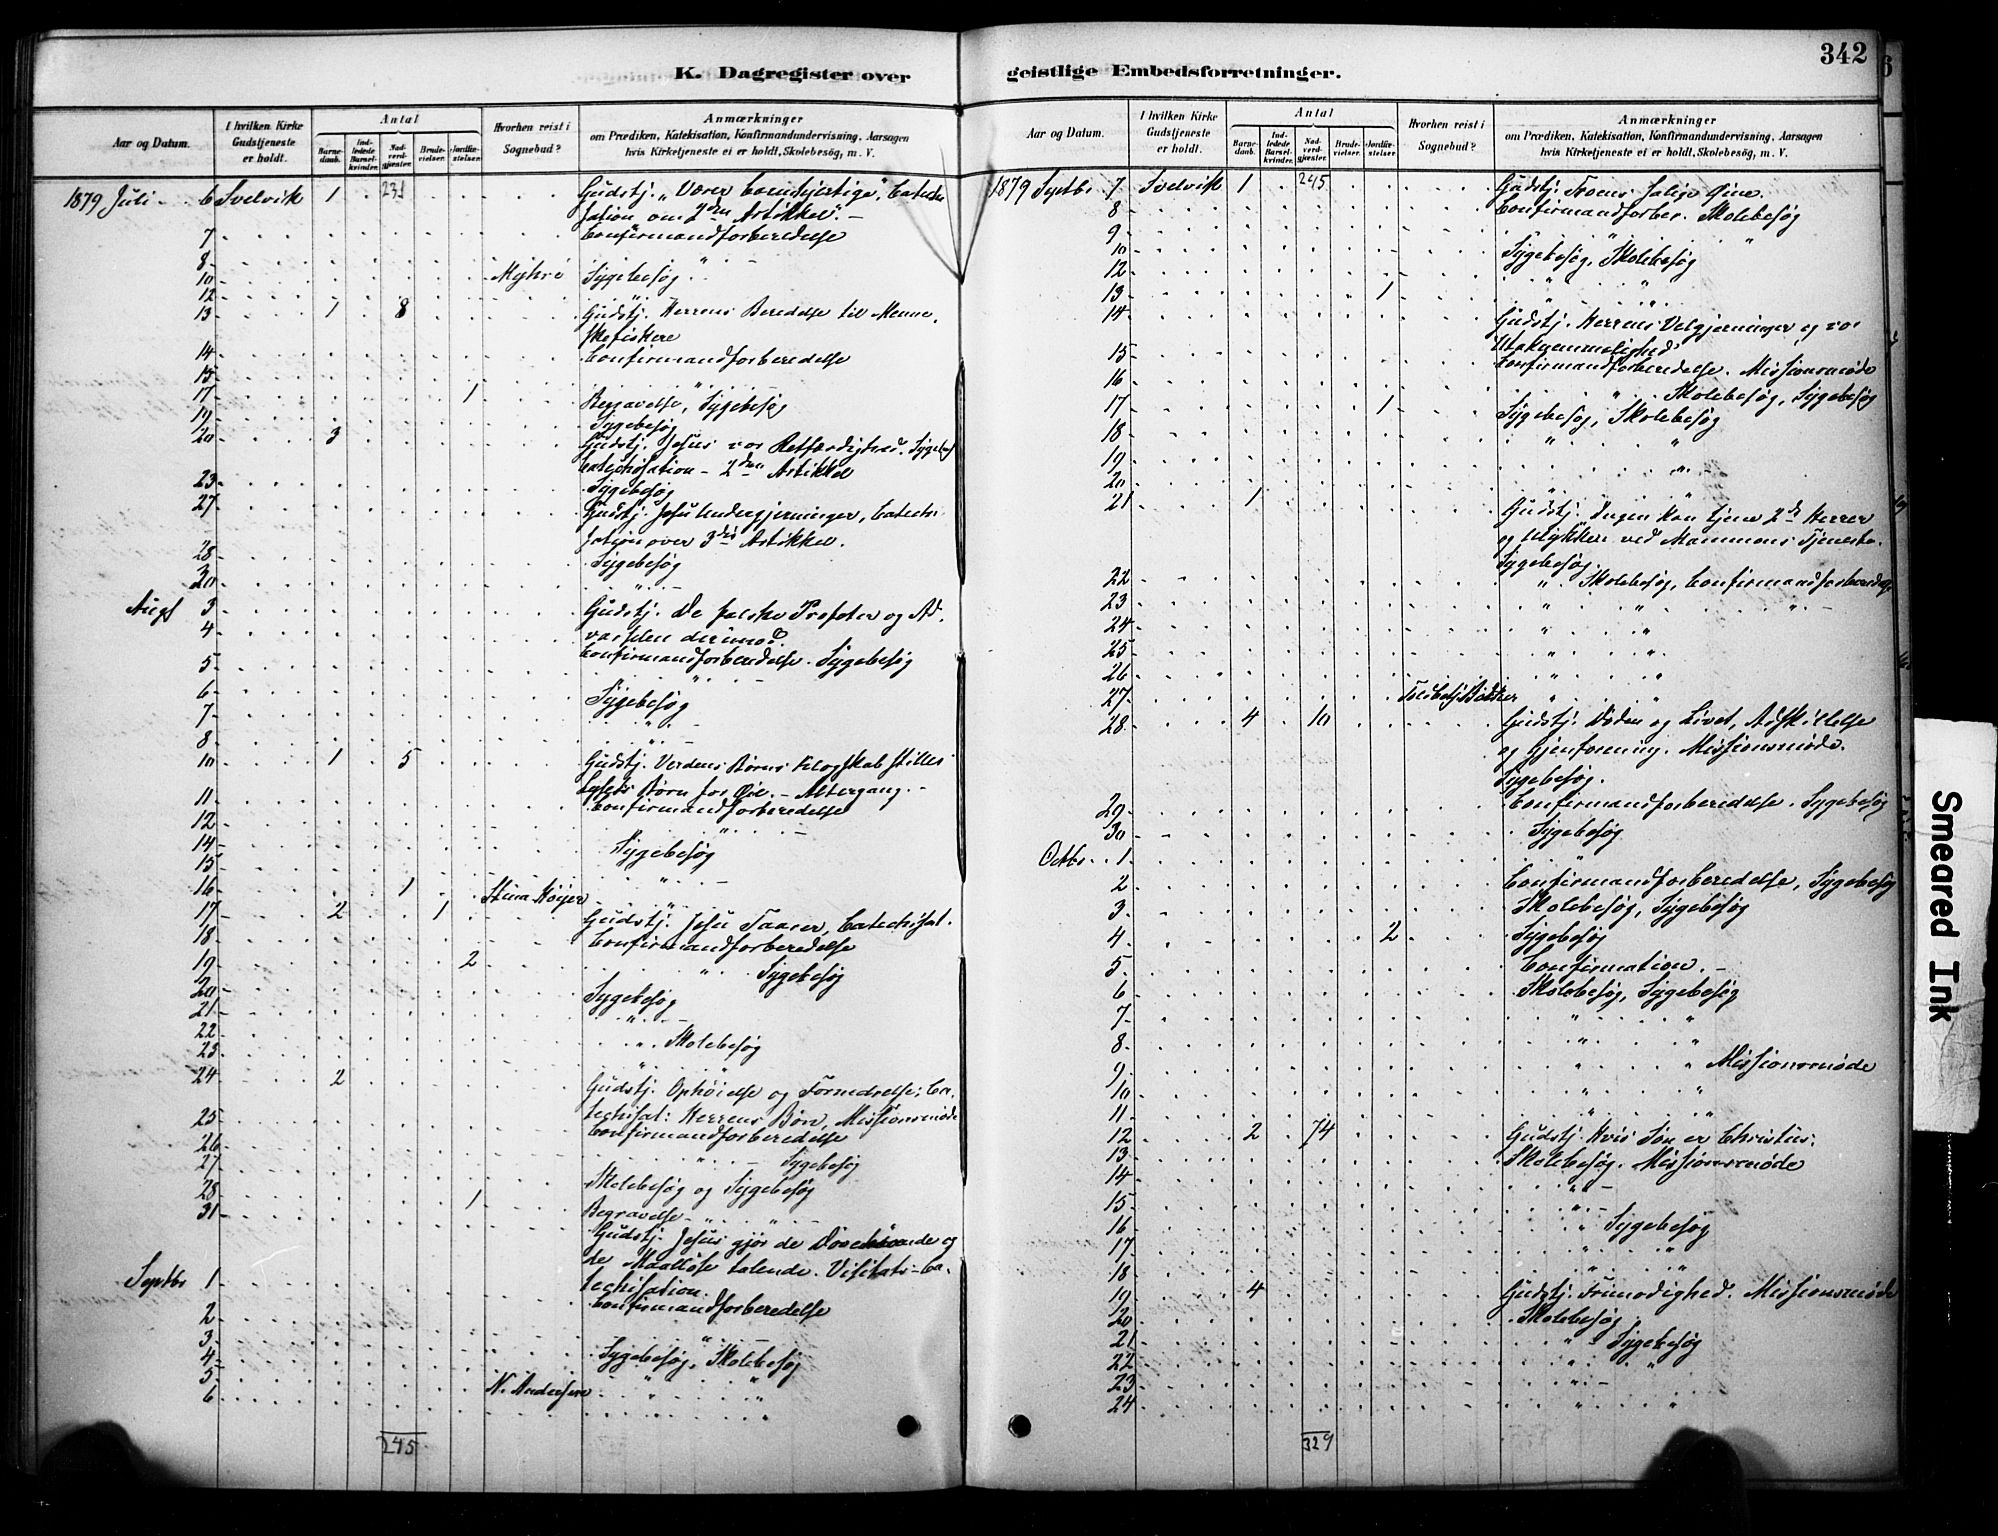 K. Dagregister over
Aar og Datum. I hvilken Kirke Gudstjeneste er holdt. Antal Barnedaab. Indledede Barselkvinder. Nadverdgjæster. Brudevielser. Jordfæstelser. Hvorhen reist i Sognebud?
Anmærkninger
om Prædiken, Katekisation, Konfirmandundervisning, Aarsagen
hvis Kirketjeneste ei er holdt, Skolebesøg, m. V.
1879 Juli 6 Svelvik 1 231 Gudstj. "Værer barmhjertige",
sation om 2den Artikkel. –
7 Confirmandforberedelse
8 "
10 Myhre Sygebesøg
12 "
13 1 8 Gudstj. Herrens Beredelse til Menne-
skefiskere
14 Confirmandforberedelse
15 "
17 1 Begravelse, Sygebesøg
19 Sygebesøg
20 3 Gudstj. Jesus vor Retfærdighed.
Catechisation – 2den Artikkel
23 Sygebesøg
27 Gudstj. Jesu Undergjerninger, Catechi-
sation over 3die Artikkel.
28 Sygebesøg
30 "
Augst 3 Gudstj. De falske Profeter og Ad-
4 varselen derimod.
Confirmandforberedelse. Sygebesøg
5 "
6 Sygebesøg
7 "
8 "
10 1 5 Gudstj. Verdens Børns Klogskab stilles
Lysets Børn for Øie. – Altergang. –
11 Confirmandforberedelse
12 "
14 Sygebesøg
15 "
16 1 Stina "
17 2 1 Gudstj. Jesu Taarer, Catechisat.
18 Confirmandforberedelse
19 2 " Sygebesøg
20 Sygebesøg
21 "
22 " Skolebesøg
23 " "
24 2 Gudstj. Ophøielse og Fornedrelse; Ca-
techisat: Herrens Bøn, Missionsmøde
25 Confirmandforberedelse
26 " Sygebesøg
27 Skolebesøg og Sygebesøg
28 1 Begravelse
31 Gudstj. Jesus gjør de Døve hørende og
de Maalløse talende. Visitats-Ca-
techisation.
Septbr 1 Confirmandforberedelse
2 "
3 Sygebesøg, Skolebesøg
4
5 N. Andersen " "
6 " "
245
geistlige Embedsforretninger.
342
Aar og Datum. I hvilken Kirke Gudstjeneste er holdt. Antal Barnedaab. Indledede Barselkvinder. Nadverdgjæster. Brudevielser. Jordfæstelser. Hvorhen reist i Sognebud?
Anmærkninger
om Prædiken, Katekisation, Konfirmandundervisning, Aarsagen
hvis Kirketjeneste ei er holdt, Skolebesøg, m. V.
1879 Septbr 7 Svelvik 1 245 Gudstj. Troens salige Øine.
8 Confirmandforber. Skolebesøg
9 " "
10 Sygebesøg, Skolebesøg
12 " "
13 1 " "
14 Gudstj. Herrens Velgjerninger og vor
Utaknemmelighed
15 Confirmandforberedelse. Missionsmøde
16 " Skolebesøg, Sygebesøg
17 1 Sygebesøg, Skolebesøg
18 " "
19 "
20 "
21 1 Gudstj. Ingen kan tjene 2de Herrer
og Ulykken ved Mammons Tjeneste.
Sygebesøg.
22 " Skolebesøg, Confirmandforberedelse
23 " " "
24 " "
25 " "
26 " "
27 " "
28 4 10 Gudstj. Døden og Livet, Adskillelse
og Gjenforening. Missionsmøde.
Sygebesøg.
29 Confirmandforberedelse. Sygebesøg
30 Sygebesøg
Octbr. 1 "
2 Confirmandforberedelse, Sygebesøg
3 Skolebesøg, Sygebesøg
4 2 Sygebesøg
5 Confirmation. –
6 Skolebesøg, Sygebesøg
7 " "
8 " "
9 " " Missionsmøde
10 " "
11 " "
12 2 74 Gudstj. Hvis Søn er Christus;
13 Skolebesøg. Missionsmøde
14 "
15 "
16 " Sygebesøg
17 " "
18 " "
19 4 Gudstj. Frimodighed. Missionsmøde
20 Skolebesøg
21 " Sygebesøg
22 " "
23 "
24 " "
329
Smeared Ink